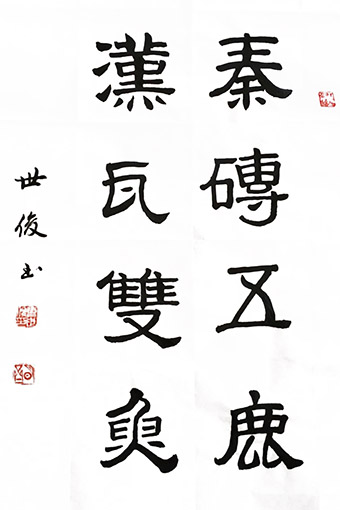 秦磚五鹿
漢瓦雙魚
世俊書